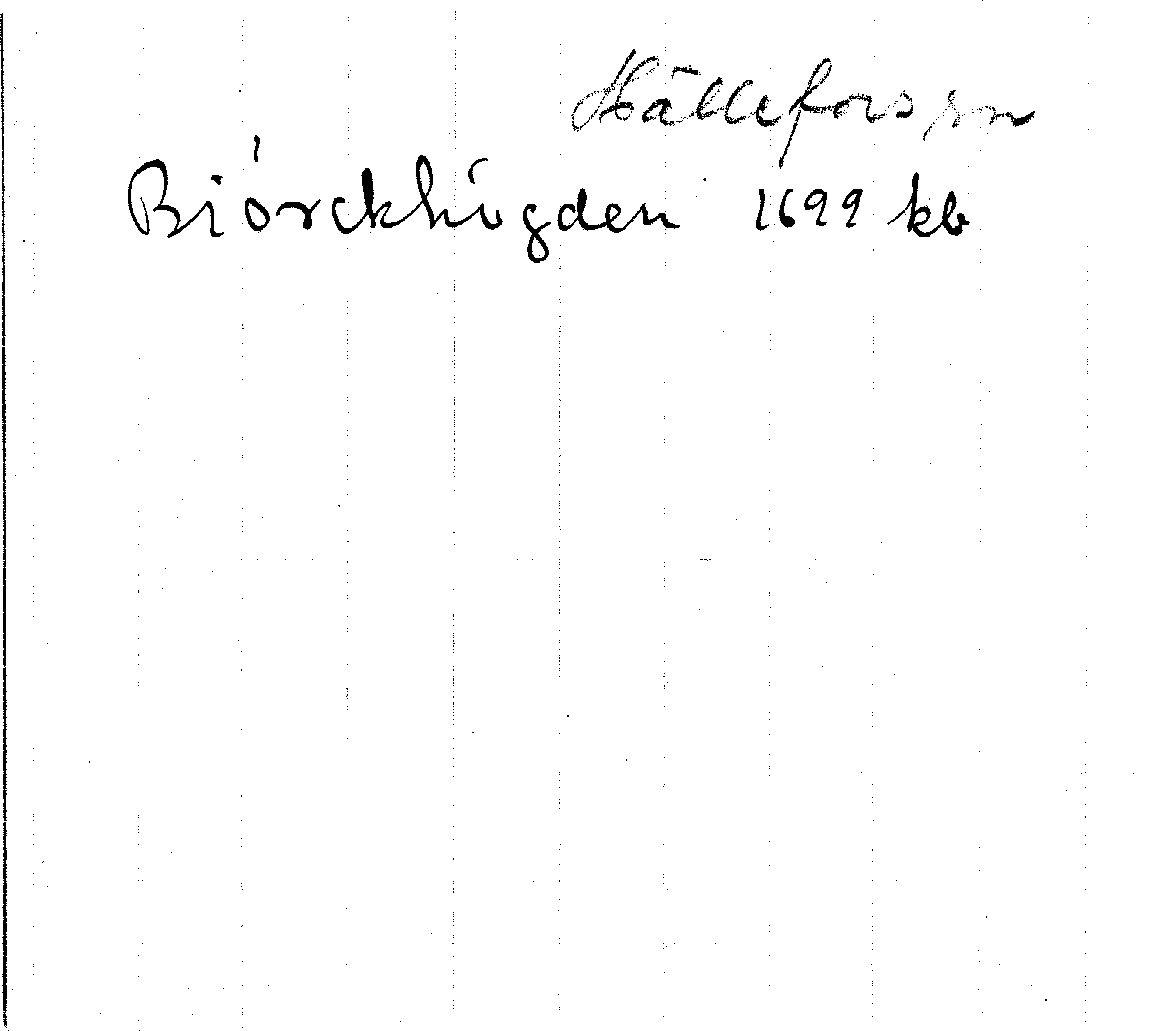 Hällefors sn
Biórckhógden 1699 kb